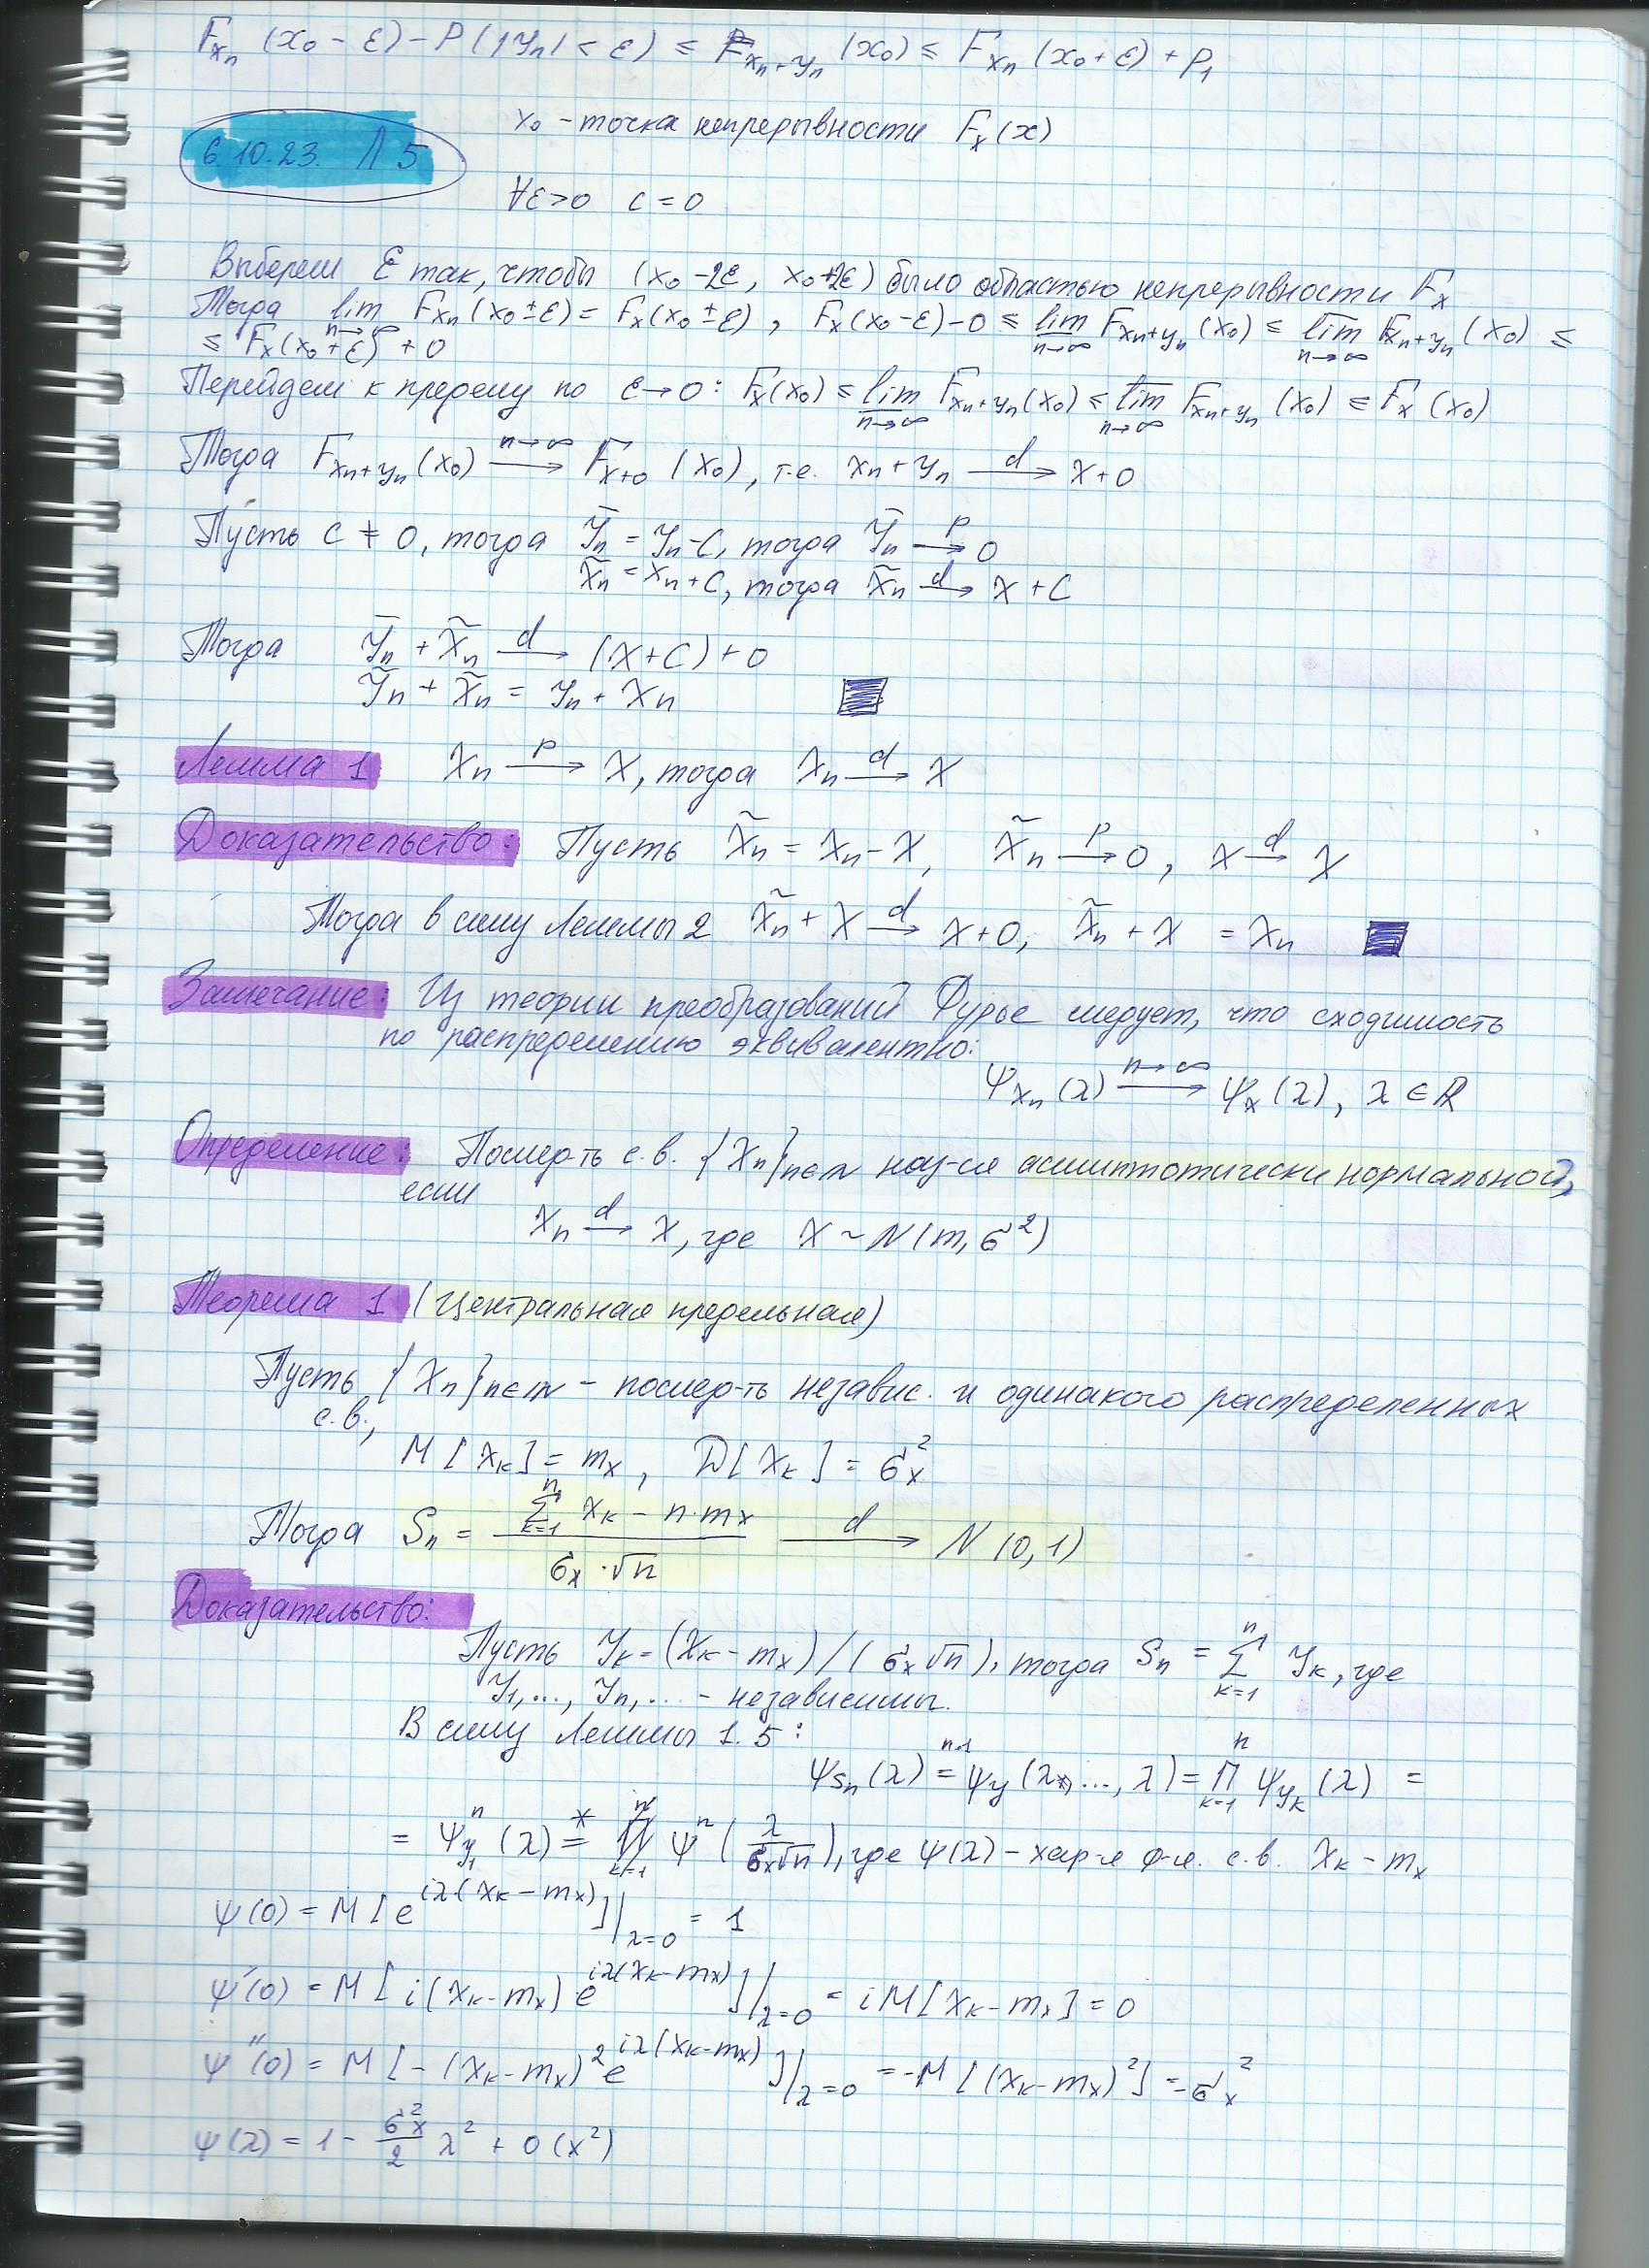 F_{x_n} (x₀ - ε) - P(|Y_n| < ε) ≤ F_{x_n+y_n} (x₀) ≤ F_{x_n} (x₀+ε) + P₁
x₀ - точка непрерывности F_x(x)
6.10.23. Л 5
∀ε>0 c = 0
Выберем ε так, чтобы (x₀-2ε, x₀+2ε) было областью непрерывности F_x
Тогда lim_{n→∞} F_{x_n}(x₀±ε) = F_x(x₀±ε), F_x(x₀-ε)-0 ≤ \underline{lim}_{n→∞} F_{x_n+y_n}(x₀) ≤ \overline{lim}_{n→∞} F_{x_n+y_n}(x₀) ≤
≤ F_x(x₀+ε) + 0
Перейдем к пределу по ε→0: F_x(x₀) ≤ \underline{lim}_{n→∞} F_{x_n+y_n}(x₀) ≤ \overline{lim}_{n→∞} F_{x_n+y_n}(x₀) ≤ F_x(x₀)
Тогда F_{x_n+y_n}(x₀) \xrightarrow{n→∞} F_{x+0}(x₀), т.е. x_n+y_n \xrightarrow{d} x+0
Пусть C ≠ 0, тогда Ỹ_n = Y_n-C, тогда Ỹ_n \xrightarrow{p} 0
X̃_n = X_n+C, тогда X̃_n \xrightarrow{d} X+C
Тогда Ỹ_n + X̃_n \xrightarrow{d} (X+C)+0
Ỹ_n + X̃_n = Y_n + X_n ■
Лемма 1 X_n \xrightarrow{p} X, тогда X_n \xrightarrow{d} X
Доказательство: Пусть X̃_n = X_n - X, X̃_n \xrightarrow{p} 0, X \xrightarrow{d} X
Тогда в силу Леммы 2 X̃_n + X \xrightarrow{d} X+0, X̃_n + X = X_n ■
Замечание: Из теории преобразований Фурье следует, что сходимость
по распределению эквивалентно:
Ψ_{X_n}(λ) \xrightarrow{n→∞} Ψ_X(λ), λ ∈ ℝ
Определение: Послед-ть с.в. {X_n}_{n∈ℕ} наз-ся асимптотически нормальной,
если
X_n \xrightarrow{d} X, где X ~ N(m, σ²)
Теорема 1 (Центральная предельная)
Пусть {X_n}_{n∈ℕ} - послед-ть независ. и одинакого распределенных
с.в.,
M[X_k] = m_x, D[X_k] = σ_x²
Тогда S_n = \frac{∑_{k=1}^{n} X_k - n·m_x}{σ_x·√n} \xrightarrow{d} N(0,1)
Доказательство:
Пусть Y_k = (X_k - m_x)/(σ_x√n), тогда S_n = ∑_{k=1}^{n} Y_k, где
Y₁,..., Y_n,... - независимы.
В силу Леммы 1.5:
Ψ_{S_n}(λ) \overset{n.1}{=} Ψ_Y(λ, ..., λ) = ∏_{k=1}^{n} Ψ_{Y_k}(λ) =
= Ψ_{Y_1}^n(λ) \overset{*}{=} Ψ^n(\frac{λ}{σ_x√n}), где Ψ(λ) - хар-я ф-я. с.в. X_k - m_x
Ψ(0) = M[e^{iλ(X_k-m_x)}]|_{λ=0} = 1
Ψ'(0) = M[i(X_k-m_x) e^{iλ(X_k-m_x)}]|_{λ=0} = iM[X_k-m_x] = 0
Ψ''(0) = M[-(X_k-m_x)² e^{iλ(X_k-m_x)}]|_{λ=0} = -M[(X_k-m_x)²] = -σ_x²
Ψ(λ) = 1 - \frac{σ_x²}{2} λ² + o(x²)